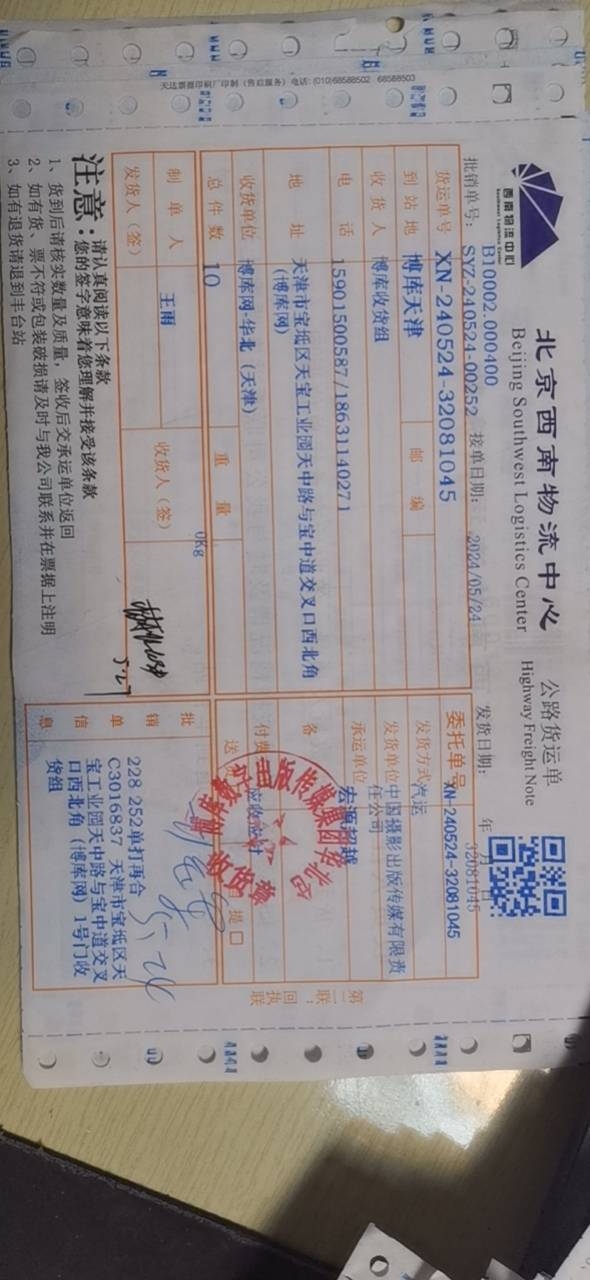 天达票据印刷厂印制 (售后服务) 电话: (010)68588502 68588503
西南物流中心
Southwest Logistics Center
北京西南物流中心
Beijing Southwest Logistics Center
公路货运单
Highway Freight Note
B10002.000400
批销单号: SYZ-240524-00252 接单日期: 2024/05/24 发货日期: 年 月 日
32081045
货运单号 XN-240524-32081045
委托单号 XN-240524-32081045
到站地 博库天津 邮编
发货方式 汽运
收货人 博库收货组
发货单位 中国摄影出版传媒有限责任公司
电话 15901500587/18631140271
承运单位 宏源超越
地址 天津市宝坻区天宝工业园天中路与宝中道交叉口西北角(博库网)
备
收货单位 博库网-华北 (天津)
付费 应收总计
总件数 10 重量 0Kg
送 提 □
制单人 王雨 收货人 (签)
发货人 (签)
5.27
批销单信息
228 252单打再合
C3016837 天津市宝坻区天
宝工业园天中路与宝中道交叉
口西北角 (博库网) 1号门收
货组
第二联: 回执联
收货章
注意:
请认真阅读以下条款
您的签字意味着您理解并接受该条款
1、货到后请核实数量及质量, 签收后交承运单位返回
2、如有货、票不符或包装破损请及时与我公司联系并在票据上注明
3、如有退货请退到丰台站